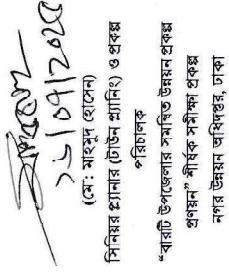 ১৬/০৭/২০২৫
(মো: মাহমুদ হোসেন)
সিনিয়র প্ল্যানার (টাউন প্ল্যানিং) ও প্রকল্প
পরিচালক
“বারটি উপজেলার সমন্বিত উন্নয়ন প্রকল্প
প্রণয়ন” শীর্ষক সমীক্ষা প্রকল্প
নগর উন্নয়ন অধিদপ্তর, ঢাকা